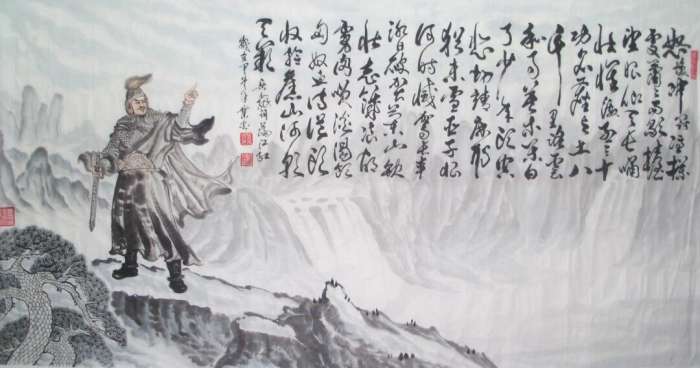 怒髮衝冠憑欄
處瀟瀟雨歇抬
望眼仰天長嘯
壯懷激烈三十
功名塵與土八
千里路雲
和月莫等閒白
了少年頭空
悲切靖康恥
猶未雪臣子恨
何時滅駕長車
踏破賀蘭山缺
壯志飢餐胡
虜肉笑談渴飲
匈奴血待從頭
收拾舊山河朝
天闕
岳飛詞滿江紅